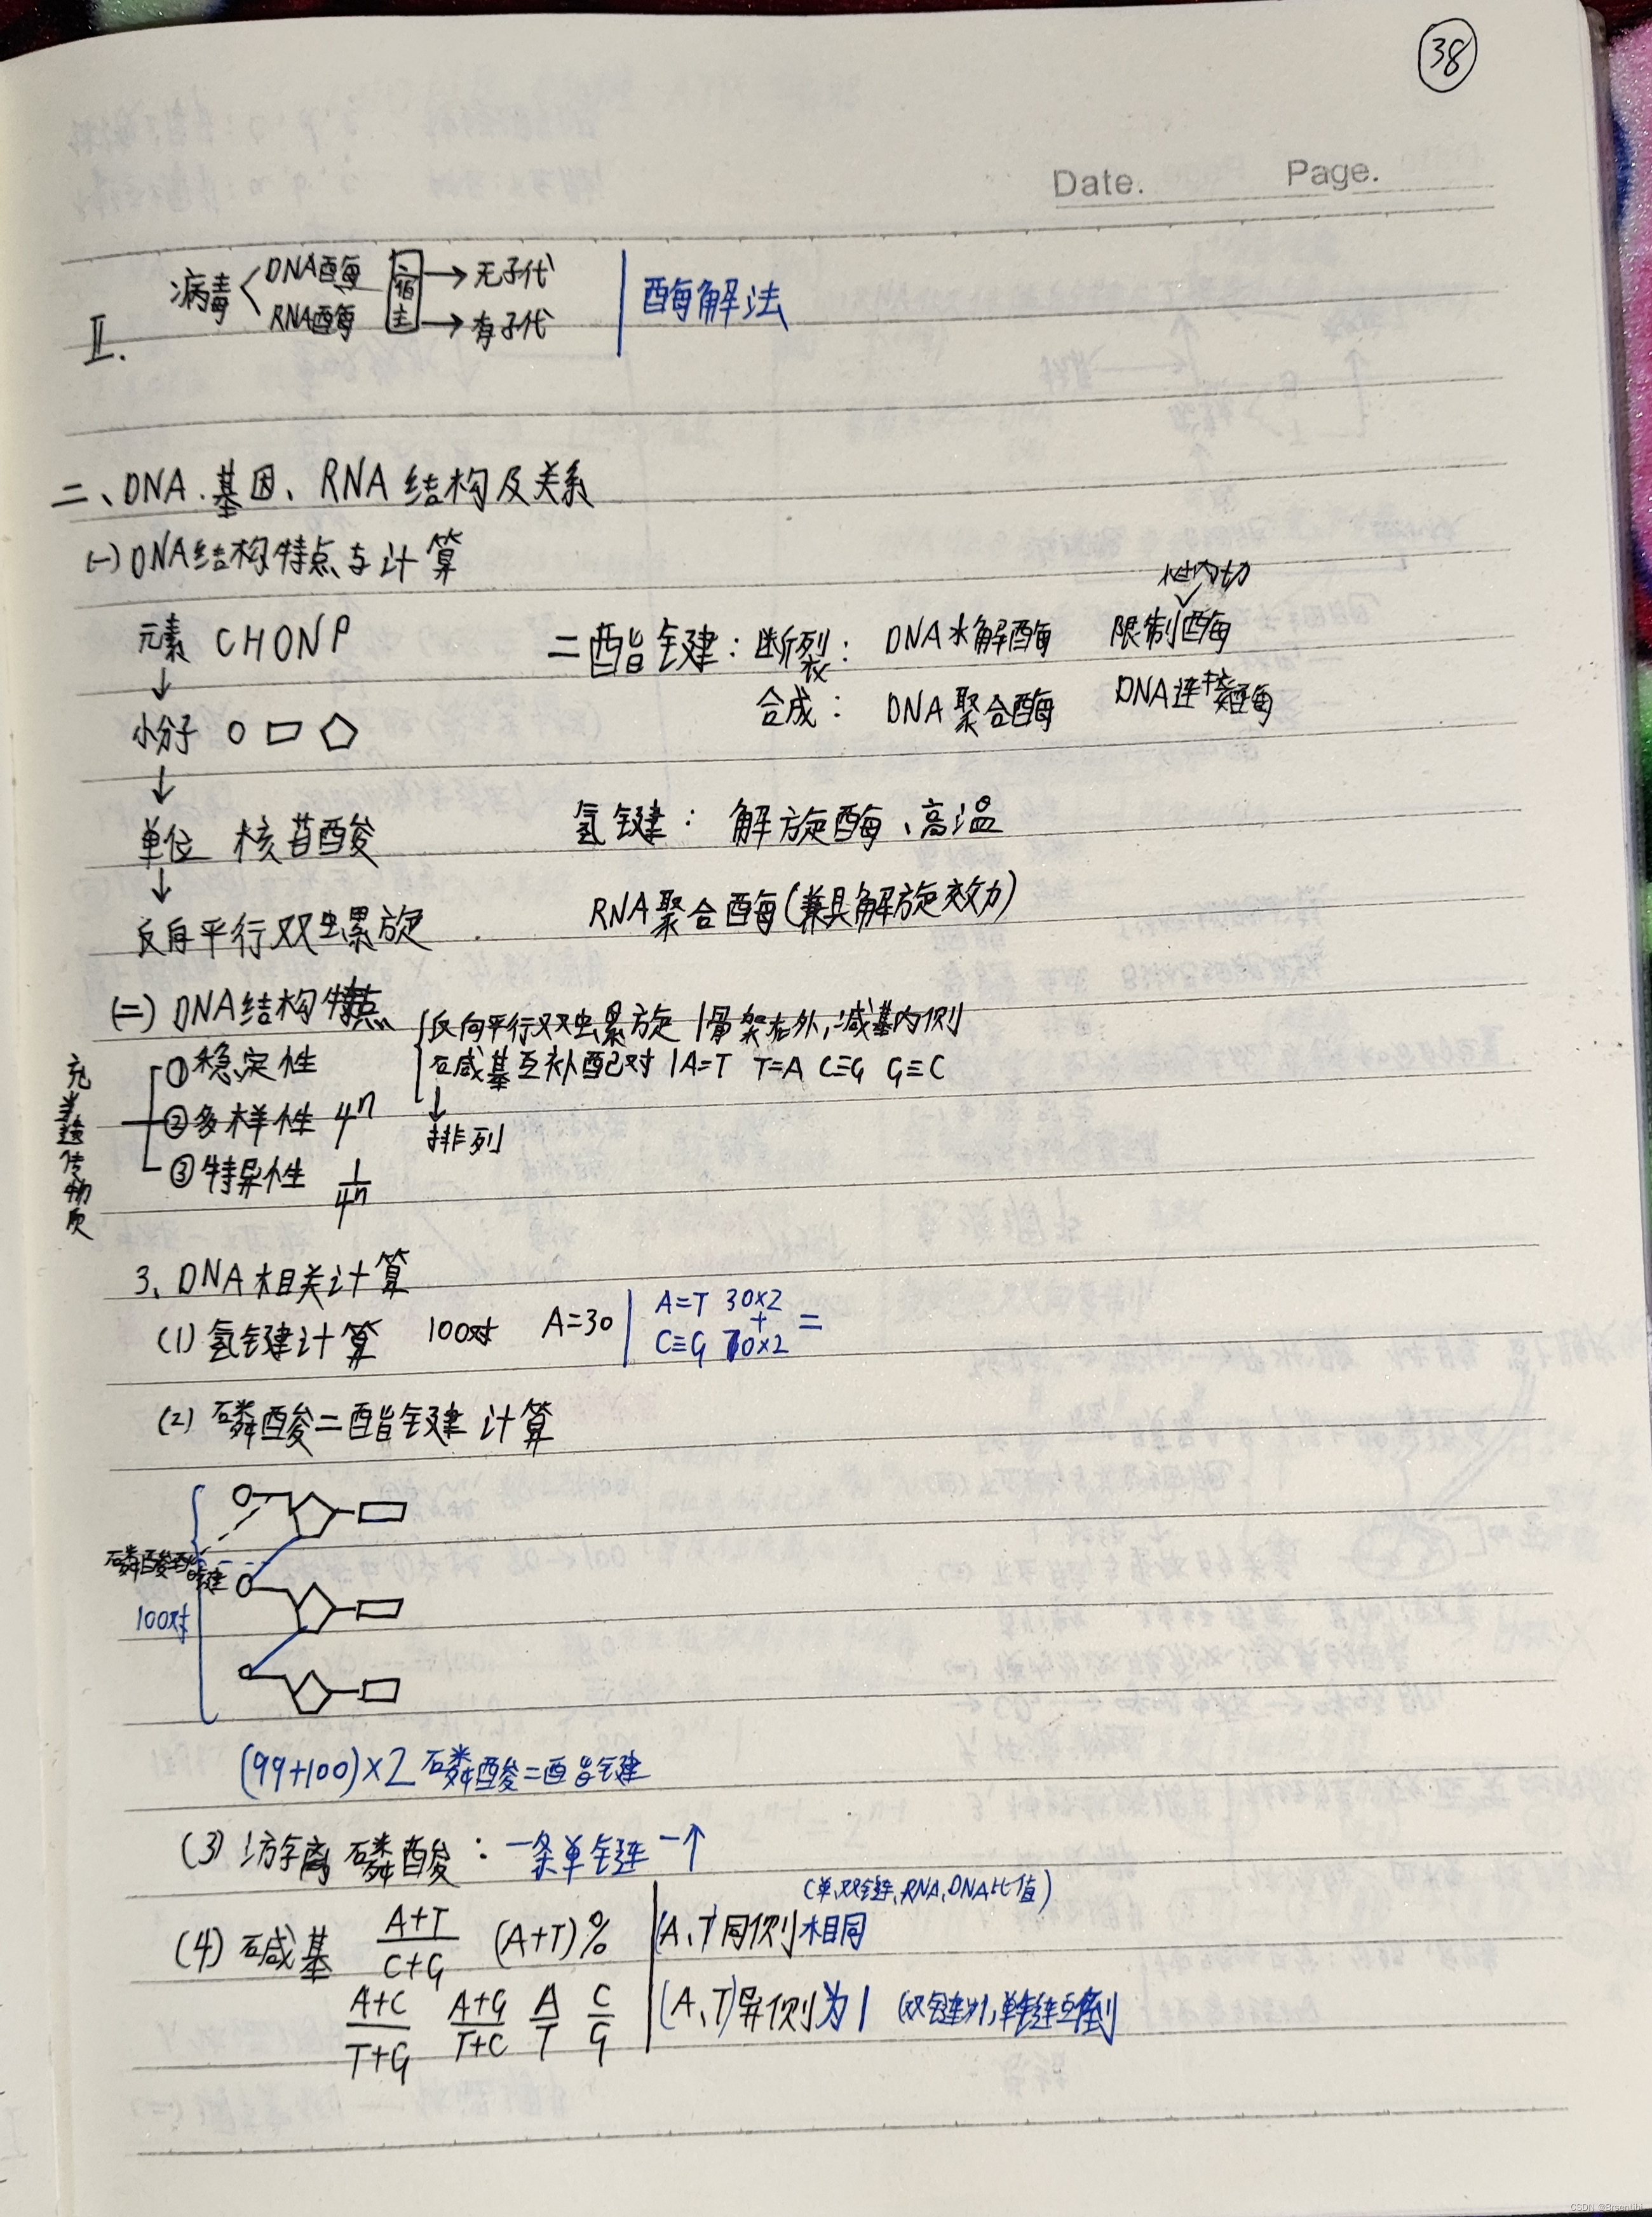 38
Date. Page.
Ⅱ. 病毒 DNA酶 宿主 → 无子代 酶解法
RNA酶 → 有子代
二、DNA.基因、RNA结构及关系
(一)DNA结构特点与计算
性内切
元素 CHONP 二酯键:断裂: DNA水解酶 限制酶
↓
小分子 合成: DNA聚合酶 DNA连接酶
↓
单位 核苷酸 氢键: 解旋酶、高温
↓
反向平行双螺旋 RNA聚合酶(兼具解旋效力)
(二) DNA结构特点 反向平行双螺旋 骨架在外,碱基内侧
①稳定性 碱基互补配对 A=T T=A C≡G G≡C
充当遗传物质
②多样性 4ⁿ ↓ 排列
③特异性 1/4ⁿ
3、DNA相关计算
(1) 氢键计算 100对 A=30 A=T 30×2
+ =
C≡G 70×2
(2) 磷酸二酯键 计算
磷酸酯键
100对
(99+100)×2 磷酸二酯键
(3) 游离磷酸: 一条单链一个
(单,双链,RNA,DNA比值)
(4) 碱基 A+T/C+G (A+T)% (A、T同侧 相同
A+C/T+G A+G/T+C A/T C/G (A、T)异侧为1 (双链为1,单链互倒
CSDN @Brsentibi